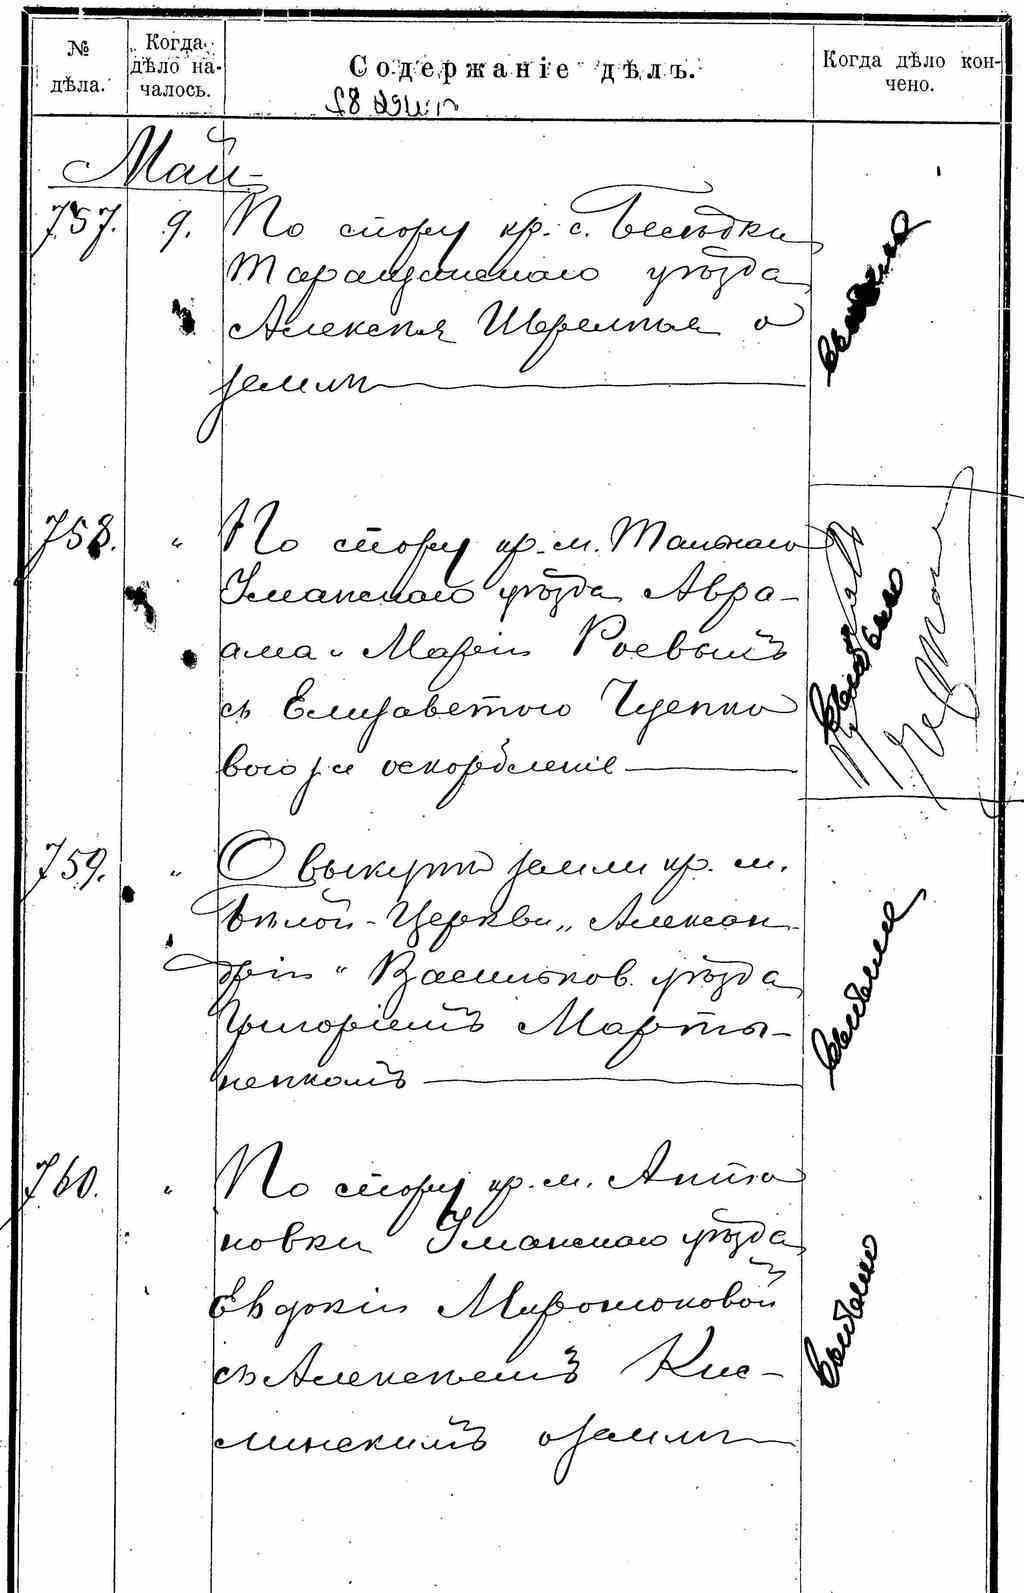 № дѣла.
Когда дѣло началось.
Содержаніе дѣлъ.
Когда дѣло кончено.
Май
757. 9. По спору кр. с. Бесѣдки
Таращанскаго уѣзда
Алексѣя Шеремтья о
землѣ
758. " По спору кр. м. Тальнаго
Уманскаго уѣзда Авра-
ама и Маріи Роевымъ
съ Елисаветою
вою за оскорбленіе
759. " О выкупѣ земли кр. м.
Бѣлой-Церкви „Алексан-
дріи" Васильков. уѣзда
Григоріемъ Марты-
ненкомъ
760. " По спору кр. м. Анто
новки Уманскаго уѣзда
Евдокіи Миронюковой
съ Алексѣемъ Кис-
линскимъ о землѣ
выбыло
выбыло
выбыло
выбыло